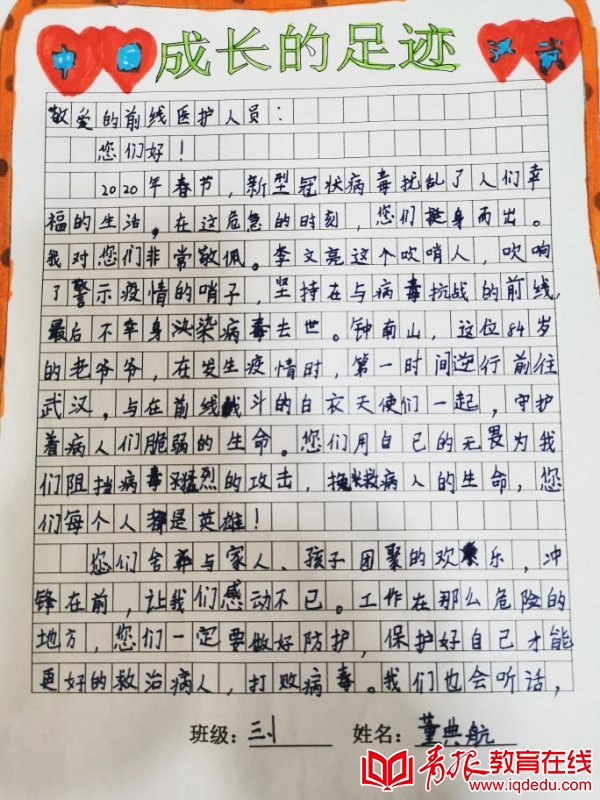 中国 成长的足迹 汉武
敬爱的前线医护人员：
您们好！
2020年春节，新型冠状病毒扰乱了人们幸
福的生活，在这危急的时刻，您们挺身而出。
我对您们非常敬佩。李文亮这个吹哨人，吹响
了警示疫情的哨子，坚持在与病毒抗战的前线，
最后不幸身染病毒去世。钟南山，这位84岁
的老爷爷，在发生疫情时，第一时间逆行前往
武汉，与在前线战斗的白衣天使们一起，守护
着病人们脆弱的生命。您们用自己的无畏为我
们阻挡病毒猛烈的攻击，挽救病人的生命，您
们每个人都是英雄！
您们舍弃与家人、孩子团聚的欢乐，冲
锋在前，让我们感动不已。工作在那么危险的
地方，您们一定要做好防护，保护好自己才能
更好的救治病人，打败病毒。我们也会听话，
班级：三1 姓名：董典航
青报教育在线
www.iqdedu.com